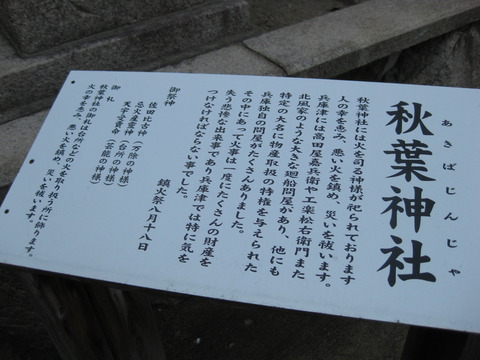 あきばじんじゃ
秋葉神社
秋葉神社には火を司る神様が祀られております
人の幸を恵み、悪い火を鎮め、災いを祓います。
兵庫津には高田屋嘉兵衛や工楽松右衛門また
北風家のような大きな廻船問屋があり、他にも
特定の大名に物産取扱の特権を与えられた
兵庫独自の問屋がたくさんありました。
その中にあって火事は一度にたくさんの財産を
失う悲惨な出来事であり兵庫津では特に気を
つけなければならない事でした。
鎮火祭八月十八日
御祭神
佐田比古神（万除の神様）
忌火産霊神（台所の神様）
天宇受売命（芸能の神様）
御札
秋葉神社の御札は台所などの火を取り扱う所に飾ります。
火の幸を恵み、悪い火を鎮め、災いを祓います。